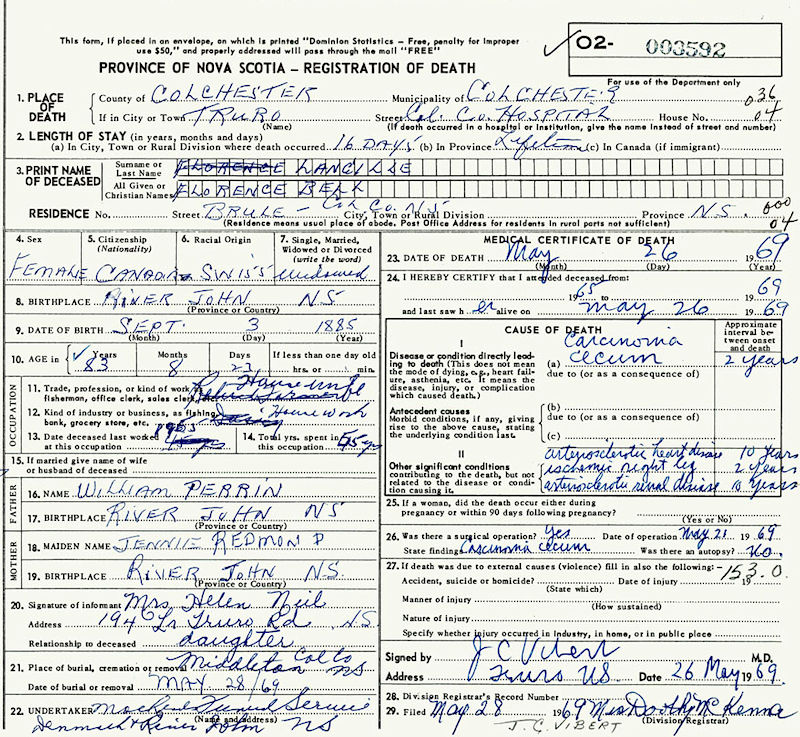 This form, if placed in an envelope, on which is printed "Dominion Statistics – Free, penalty for improper
use $50," and properly addressed will pass through the mail "FREE"
✓ O2- 003592
For use of the Department only
PROVINCE OF NOVA SCOTIA – REGISTRATION OF DEATH
1. PLACE OF DEATH County of COLCHESTER Municipality of COLCHESTER 036
If in City or Town TRURO (Name) Street Col. Co. HOSPITAL House No. 04
(If death occurred in a hospital or institution, give the name instead of street and number)
2. LENGTH OF STAY (in years, months and days)
(a) In City, Town or Rural Division where death occurred 16 DAYS (b) In Province Lifetime (c) In Canada (if immigrant)
3. PRINT NAME OF DECEASED
Surname or Last Name FLORENCE LANGILLE
All Given or Christian Names FLORENCE BELL
RESIDENCE No. Street BRULE – Col Co. N.S. City, Town or Rural Division Province N.S. 600
(Residence means usual place of abode. Post Office Address for residents in rural parts not sufficient) 04
4. Sex FEMALE
5. Citizenship (Nationality) CANADIAN
6. Racial Origin SWISS
7. Single, Married, Widowed or Divorced (write the word) widowed
8. BIRTHPLACE RIVER JOHN NS
(Province or Country)
9. DATE OF BIRTH SEPT. 3 1885
(Month) (Day) (Year)
10. AGE in Years 83 Months 8 Days 23 If less than one day old hrs. or min.
OCCUPATION
11. Trade, profession, or kind of work as fisherman, office clerk, sales clerk, etc. Housewife
12. Kind of industry or business, as fishing, bank, grocery store, etc. House work
13. Date deceased last worked at this occupation 1965
14. Total yrs. spent in this occupation 55 yrs
15. If married give name of wife or husband of deceased
FATHER
16. NAME WILLIAM PERRIN
17. BIRTHPLACE RIVER JOHN NS
(Province or Country)
MOTHER
18. MAIDEN NAME JENNIE REDMOND
19. BIRTHPLACE RIVER JOHN NS.
(Province or Country)
20. Signature of informant Mrs Helen Neil
Address 194 Lr Truro Rd NS
Relationship to deceased daughter
21. Place of burial, cremation or removal Middleton Col Co NS
Date of burial or removal MAY 28/69
22. UNDERTAKER Funeral Service
(Name and address)
Denmark & River John NS
MEDICAL CERTIFICATE OF DEATH
23. DATE OF DEATH May 26 1969
(Month) (Day) (Year)
24. I HEREBY CERTIFY that I attended deceased from:
1965 to 69
and last saw her alive on May 26 1969
CAUSE OF DEATH
Approximate interval between onset and death
I
Disease or condition directly leading to death (This does not mean the mode of dying, e.g., heart failure, asthenia, etc. It means the disease, injury, or complication which caused death.)
(a) Carcinoma cecum 2 years
due to (or as a consequence of)
Antecedent causes
Morbid conditions, if any, giving rise to the above cause, stating the underlying condition last.
(b)
due to (or as a consequence of)
(c)
II
Other significant conditions contributing to the death, but not related to the disease or condition causing it.
arteriosclerotic heart disease 10 years
ischemic right leg 2 years
arteriosclerotic renal disease 10 years
25. If a woman, did the death occur either during pregnancy or within 90 days following pregnancy?
(Yes or No)
26. Was there a surgical operation? Yes Date of operation May 21 1969
State findings Carcinoma cecum Was there an autopsy? No.
27. If death was due to external causes (violence) fill in also the following: –153.0
Accident, suicide or homicide? Date of injury 19
(State which)
Manner of injury
(How sustained)
Nature of injury
Specify whether injury occurred in industry, in home, or in public place
Signed by J C Vibert M.D.
Address Truro NS Date 26 May 1969.
28. Division Registrar's Record Number
29. Filed May 28 1969 Miss Dorothy McKenna
(Division Registrar)
J. C. VIBERT